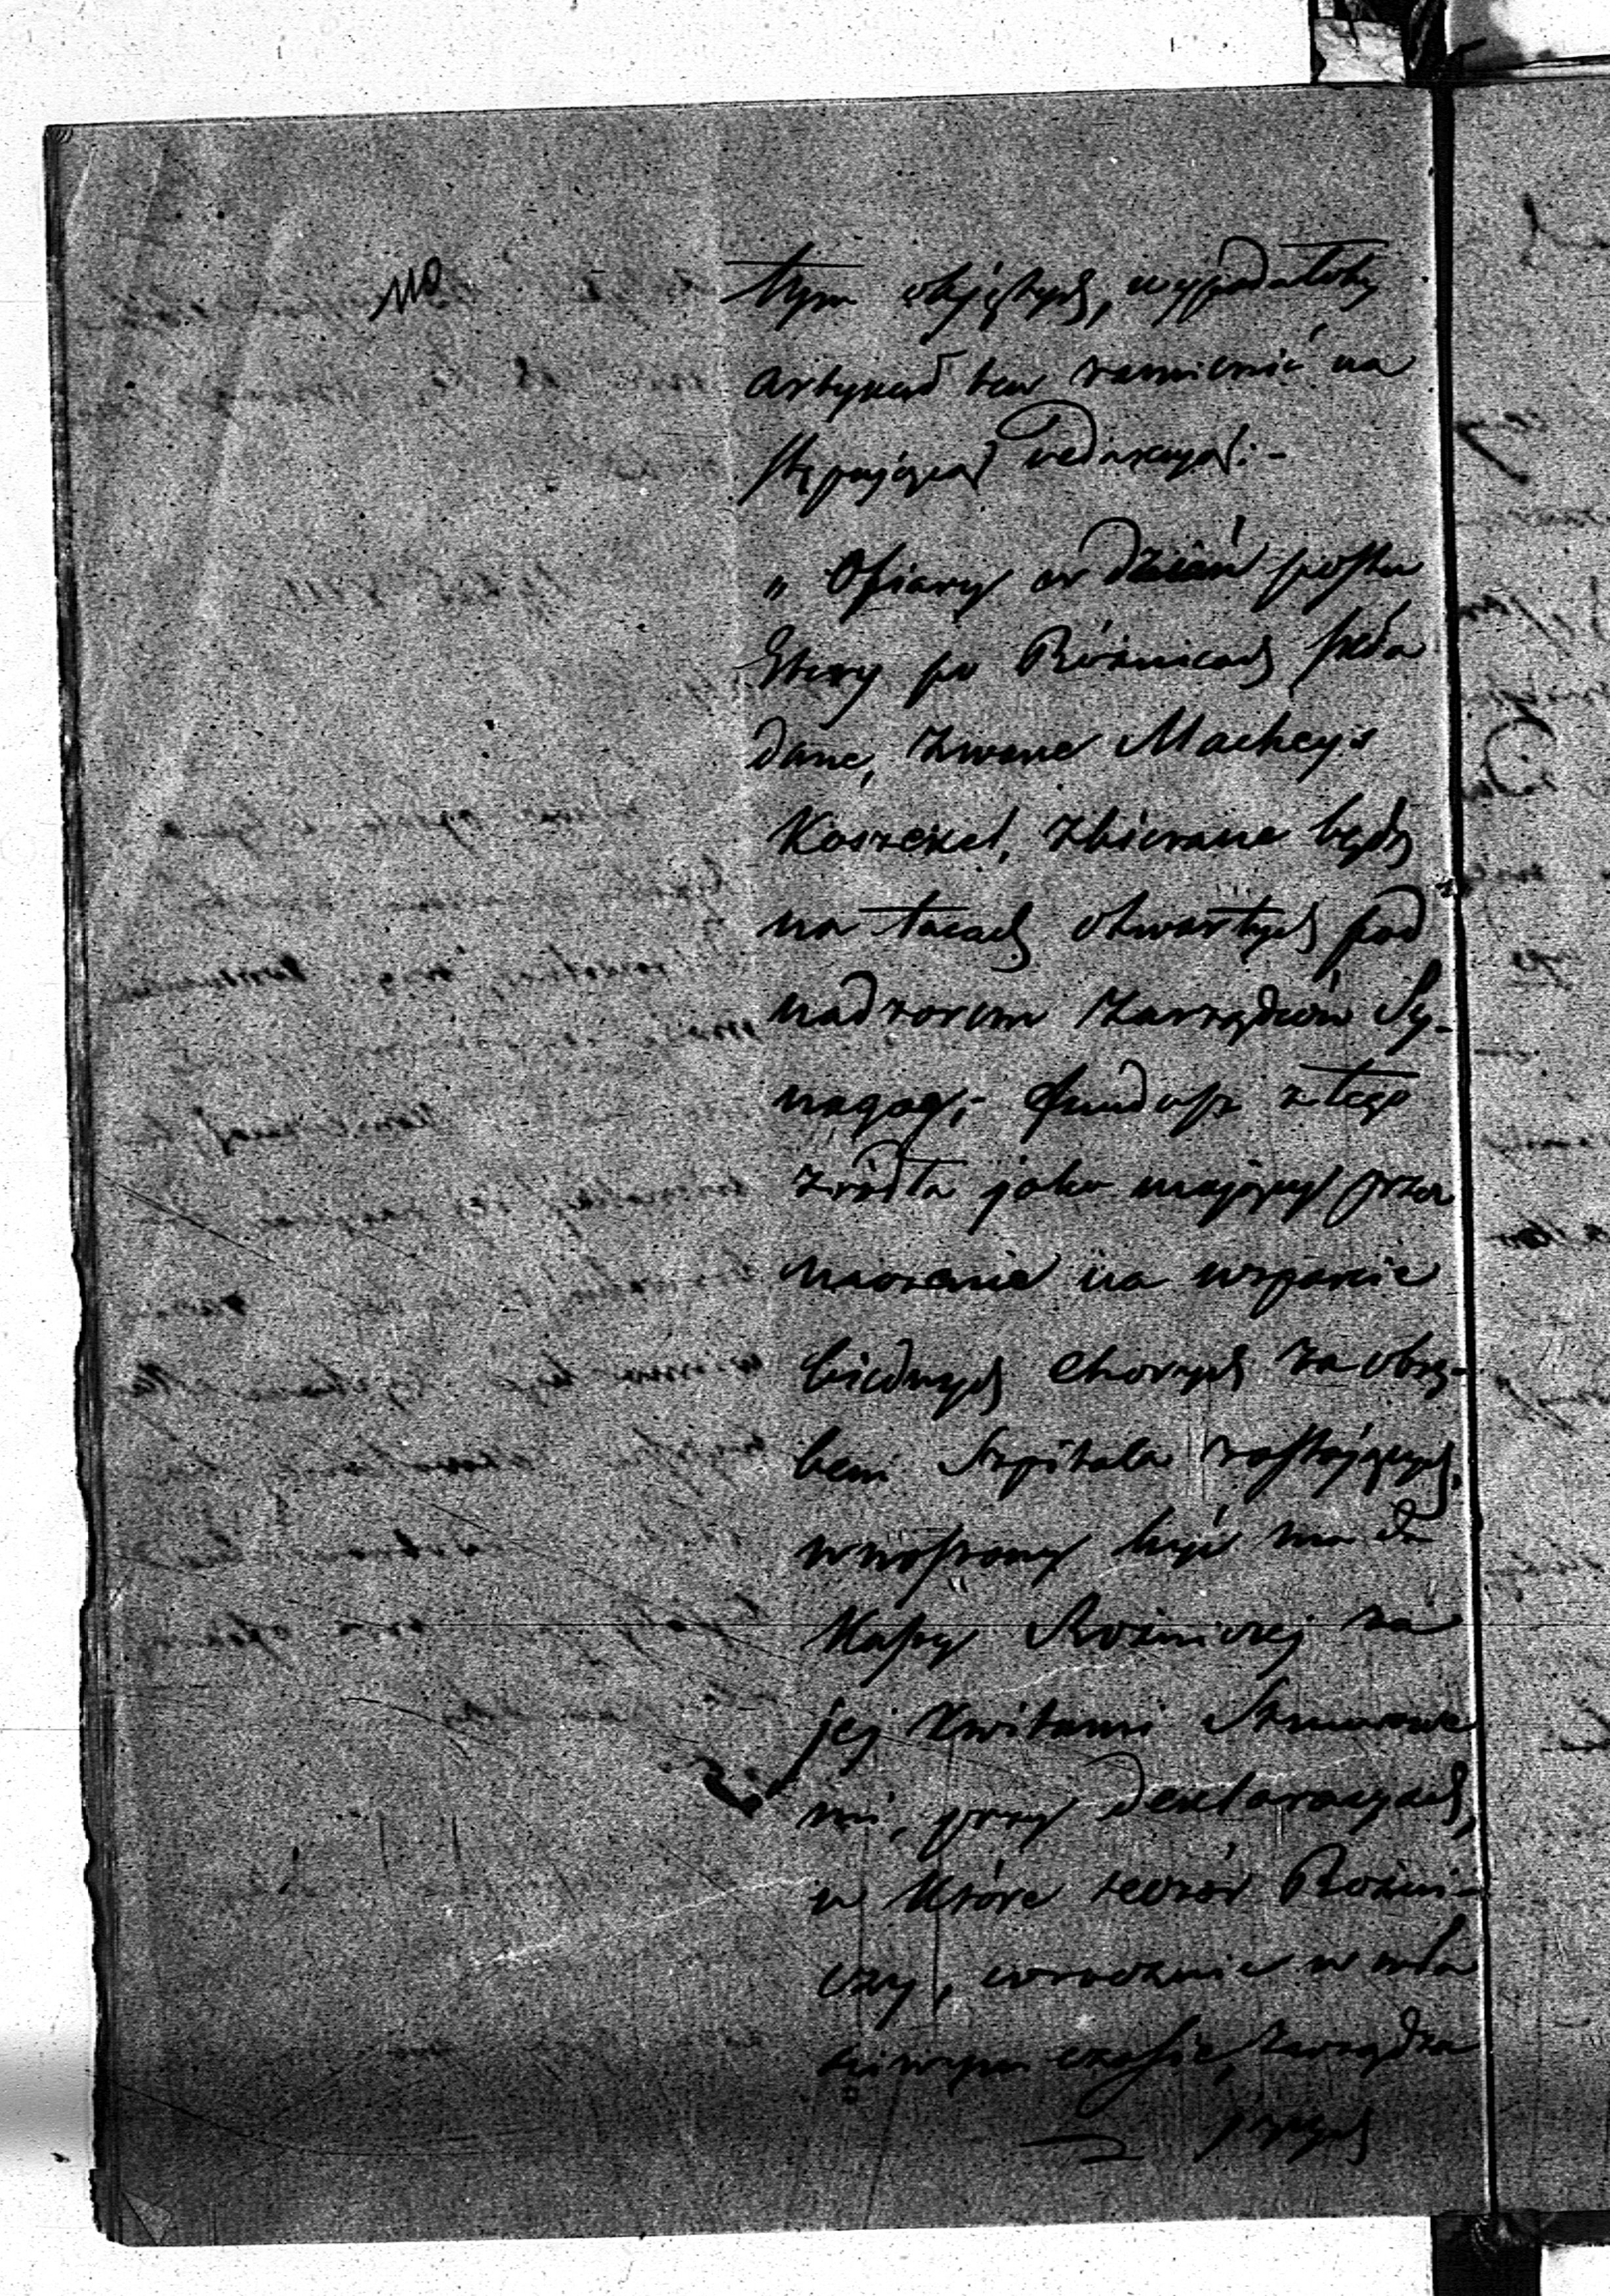 110
tym objętych, wypadałoby
artykuł ten zamienić na
stępującą redakcyą: -
„ Ofiary w dzień postu
Estery po Bóżnicach skła
dane, zwane Macheys
Koszekel, zbierane będą
na tacach otwartych pod
nadzorem Zarządów Sy-
nagog; - fundusz z tego
źródła jako mający prze
znaczenie na wsparcie
biednych chorych za obrę-
bem Szpitala zostających,
wnoszony być ma do
Kassy Bóżniczej za
jej kwitami Sznurowe
mi, przy deklaracyach,
w które dozór Bóżni-
czy, corocznie w wła
ściwym czasie, zarządza
jących